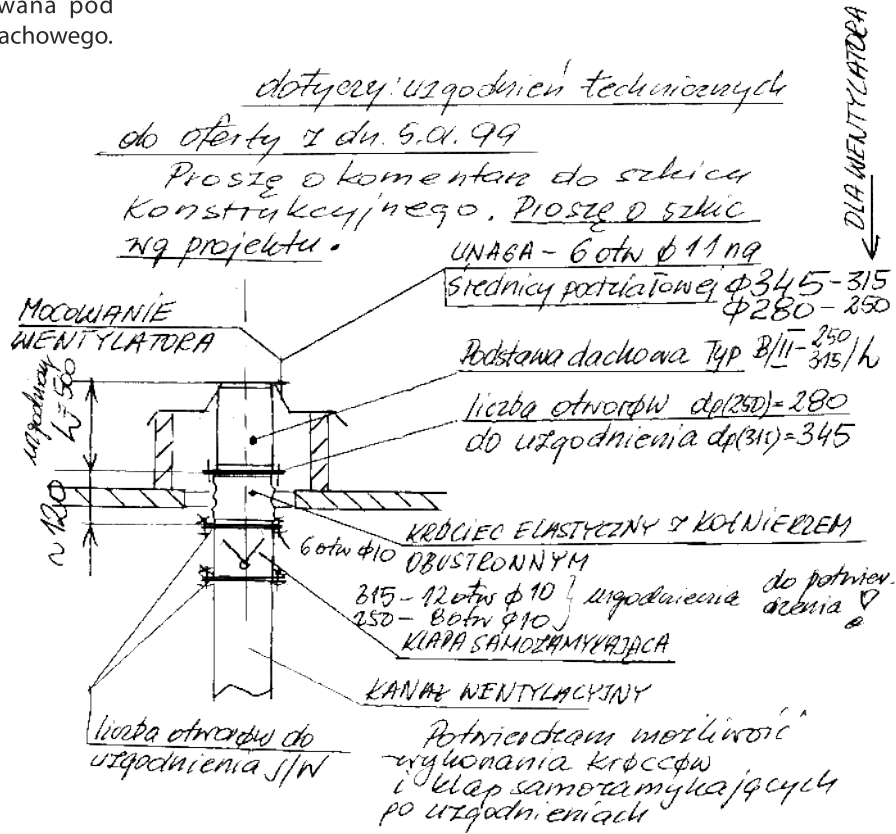 wana pod
achowego.
dotyczy: uzgodnień technicznych
do oferty z dn. 5.01.99
Proszę o komentarz do szkicu
konstrukcyjnego. Proszę o szkic
wg projektu.
DLA WENTYLATORA
UWAGA - 6 otw ϕ 11 na
średnicy podziałowej ϕ345-315
ϕ280-250
MOCOWANIE
WENTYLATORA
Podstawa dachowa Typ B/II-250
315/h
uzgodniony
h=500
liczba otworów dp(250)=280
do uzgodnienia dp(315)=345
~120
KRÓCIEC ELASTYCZNY Z KOŁNIERZEM
OBUSTRONNYM
6 otw ϕ10
315-12 otw ϕ10
250-8 otw ϕ10
uzgodnienia
do potwier-
dzenia!
KLAPA SAMOZAMYKAJĄCA
KANAŁ WENTYLACYJNY
liczba otworów do
uzgodnienia J/W
Potwierdzam możliwość
wykonania króćców
i klap samozamykających
po uzgodnieniach